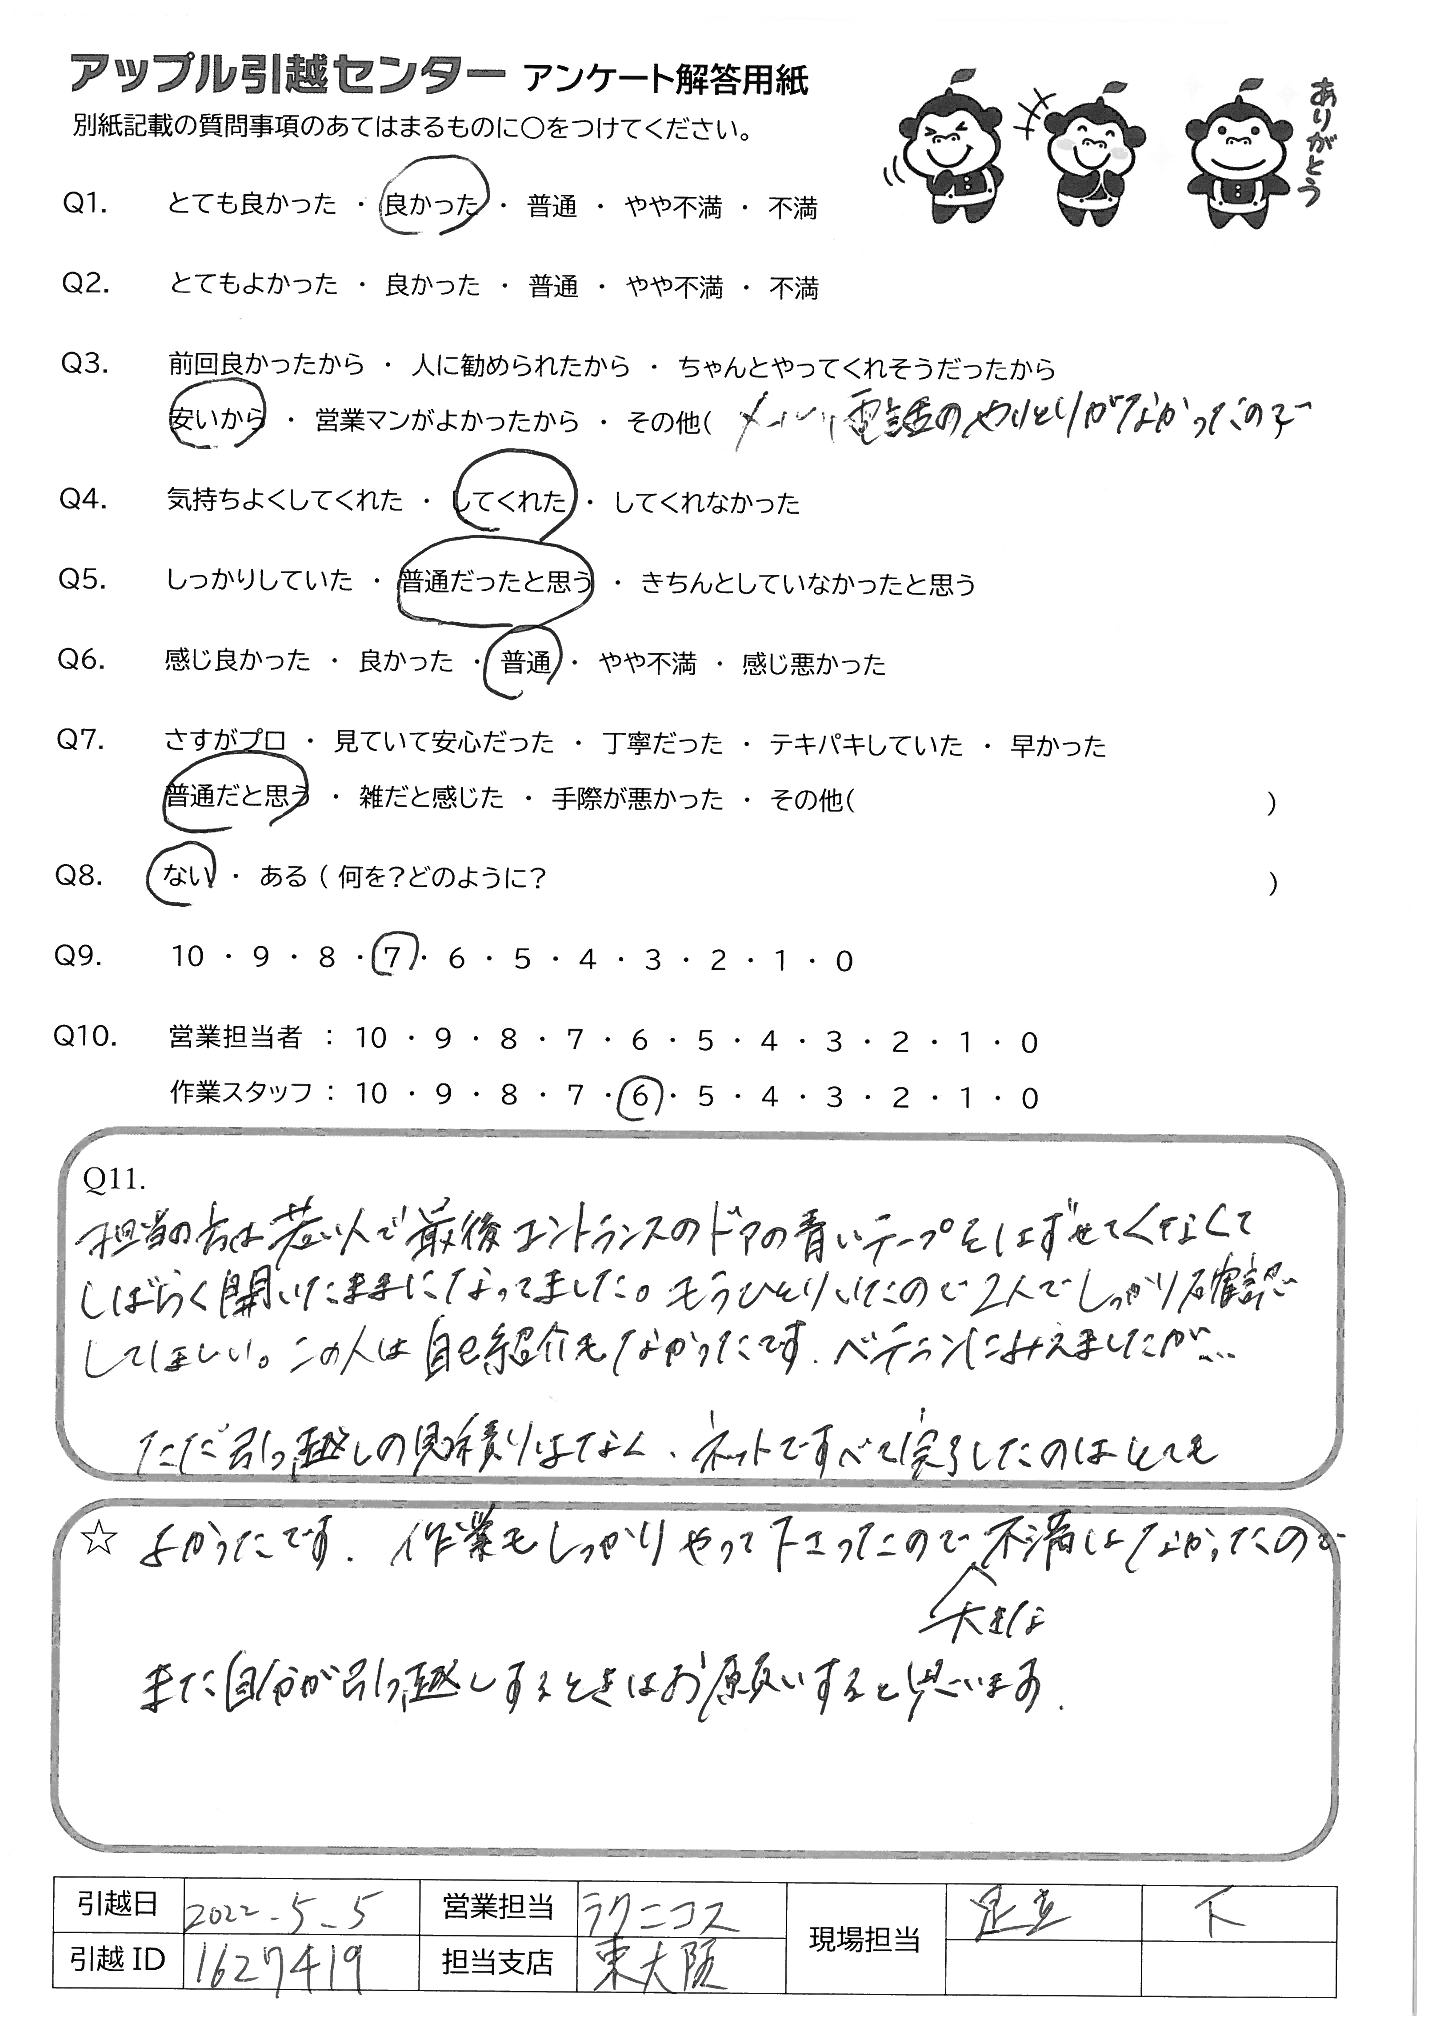 アップル引越センター アンケート解答用紙
ありがとう
別紙記載の質問事項のあてはまるものに○をつけてください。
Q1. とても良かった ・ 良かった ・ 普通 ・ やや不満 ・ 不満
Q2. とてもよかった ・ 良かった ・ 普通 ・ やや不満 ・ 不満
Q3. 前回良かったから ・ 人に勧められたから ・ ちゃんとやってくれそうだったから
安いから ・ 営業マンがよかったから ・ その他( メール、電話のやりとりがなかったので
Q4. 気持ちよくしてくれた ・ してくれた ・ してくれなかった
Q5. しっかりしていた ・ 普通だったと思う ・ きちんとしていなかったと思う
Q6. 感じ良かった ・ 良かった ・ 普通 ・ やや不満 ・ 感じ悪かった
Q7. さすがプロ ・ 見ていて安心だった ・ 丁寧だった ・ テキパキしていた ・ 早かった
普通だと思う ・ 雑だと感じた ・ 手際が悪かった ・ その他( )
Q8. ない ・ ある ( 何を?どのように? )
Q9. 10 ・ 9 ・ 8 ・ 7 ・ 6 ・ 5 ・ 4 ・ 3 ・ 2 ・ 1 ・ 0
Q10. 営業担当者 : 10 ・ 9 ・ 8 ・ 7 ・ 6 ・ 5 ・ 4 ・ 3 ・ 2 ・ 1 ・ 0
作業スタッフ : 10 ・ 9 ・ 8 ・ 7 ・ 6 ・ 5 ・ 4 ・ 3 ・ 2 ・ 1 ・ 0
Q11.
担当の方は若い人で最後エントランスのドアの青いテープをはずせてくなくて
しばらく開いたままになってました。もうひとりいたので2人でしっかり確認
してほしい。この人は自己紹介もなかったです、ベテランにみえましたが…
ただ引っ越しの見積りはなく、ネットですべて完了したのはとても
☆ よかったです、作業もしっかりやって下さったので不満はなかったので
大きな
また自分が引っ越しするときはお願いすると思います、
引越日 2022-5-5 営業担当 ラクニコス 現場担当 足立 下
引越ID 1627419 担当支店 東大阪